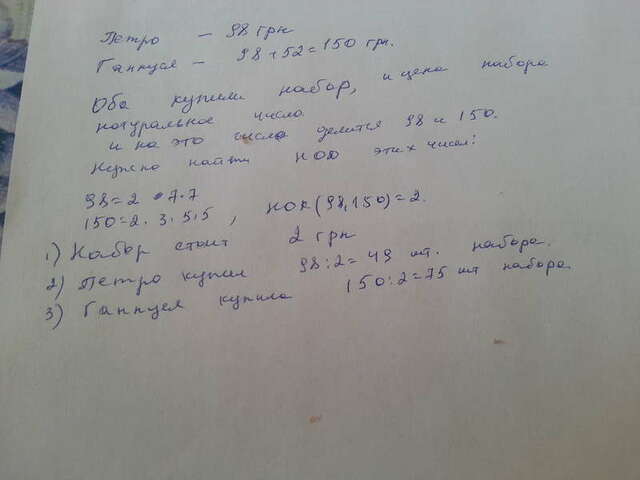 Петро - 98 грн
Ганнуся - 98+52=150 грн.
Оба купили набор, и цена набора
натуральное число
и на это число делится 98 и 150.
Нужно найти НОД этих чисел:
98=2·7·7
150=2·3·5·5, НОК(98,150)=2.
1) Набор стоит 2 грн
2) Петро купил 98:2=49 шт. набора.
3) Ганнуся купила 150:2=75 шт набора